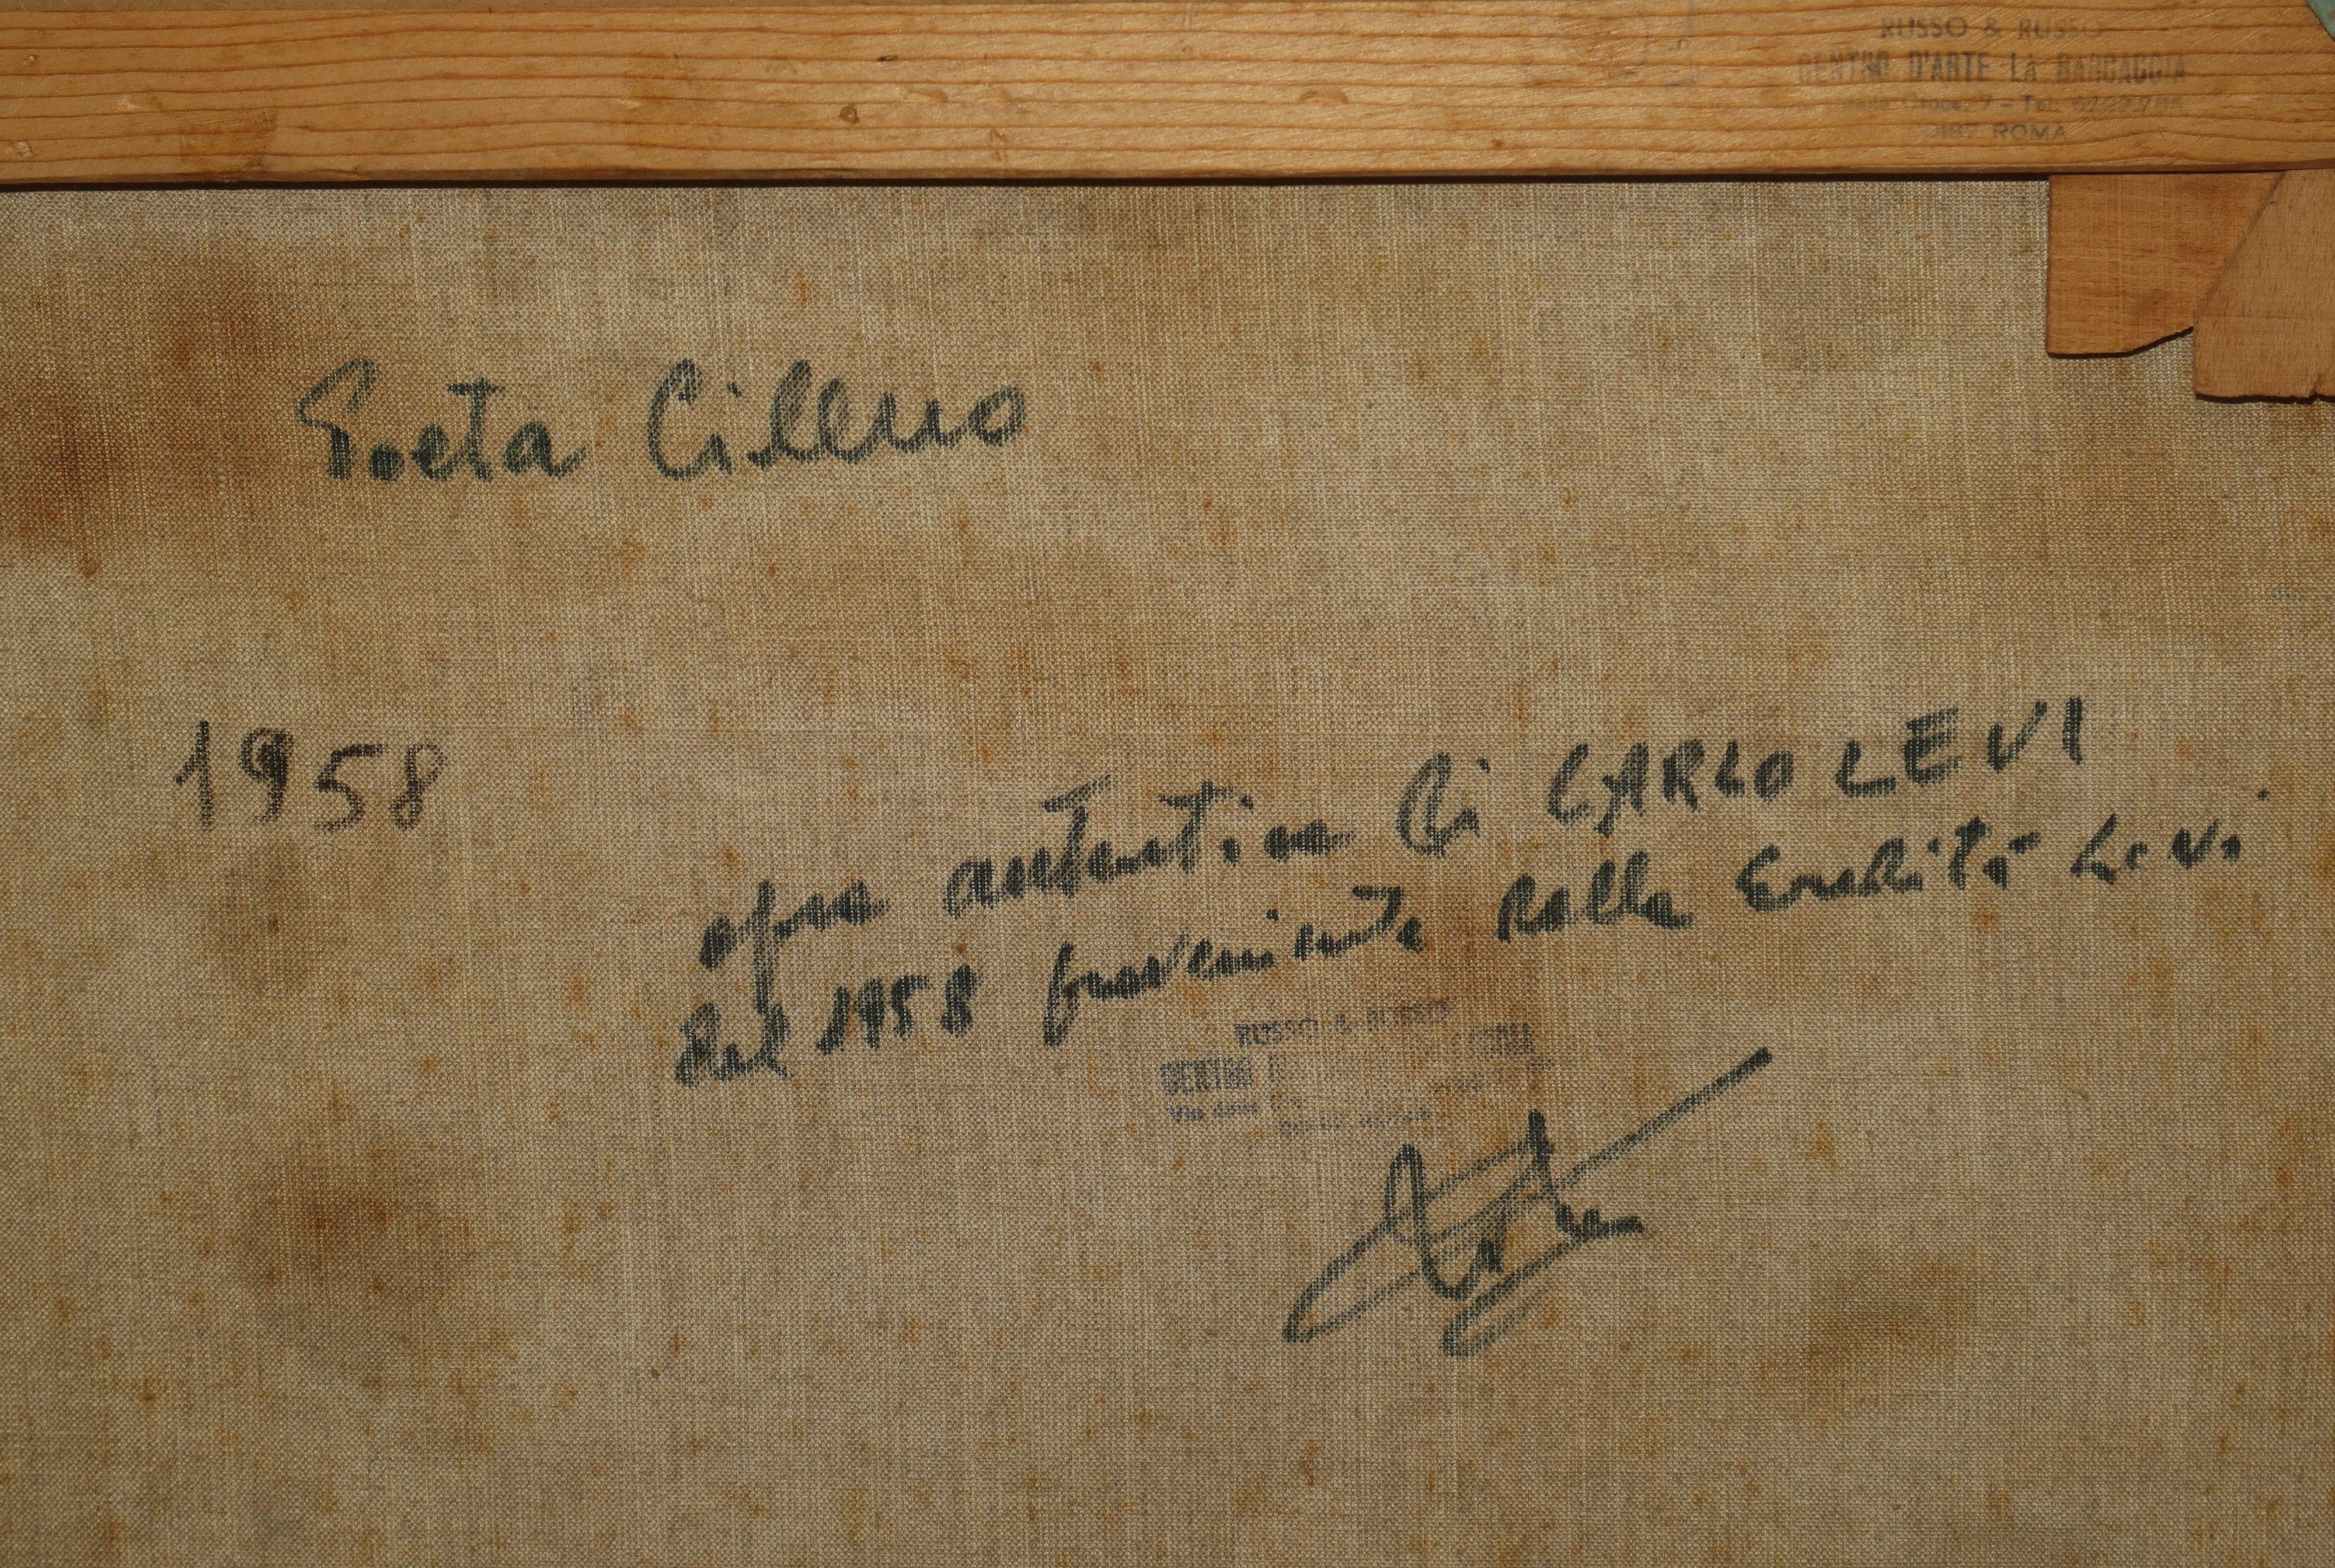 RUSSO & RUSSO
CENTRO D'ARTE LA BARCACCIA
7 - Tel.
00187 ROMA
Poeta Cileno
1958
opera autentica di CARLO LEVI
del 1958 proveniente dalla Eredità Levi
RUSSO & RUSSO
CENTRO
Via della